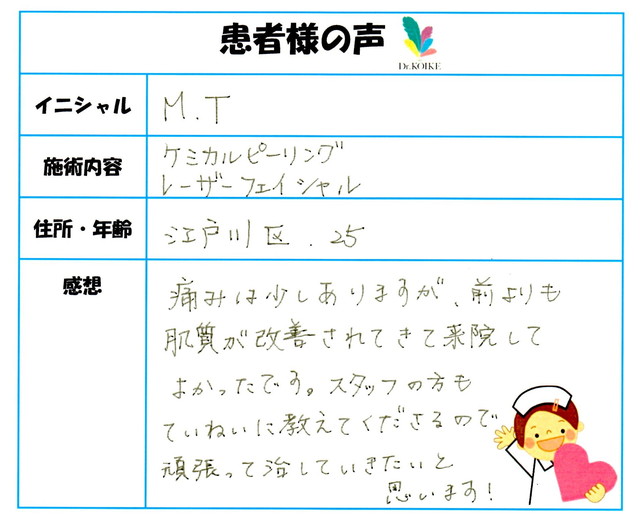 患者様の声
Dr.KOIKE
イニシャル
M.T
施術内容
ケミカルピーリング
レーザーフェイシャル
住所・年齢
江戸川区.25
感想
痛みは少しありますが、前よりも
肌質が改善されてきて来院して
よかったです。スタッフの方も
ていねいに教えてくださるので
頑張って治していきたいと
思います!